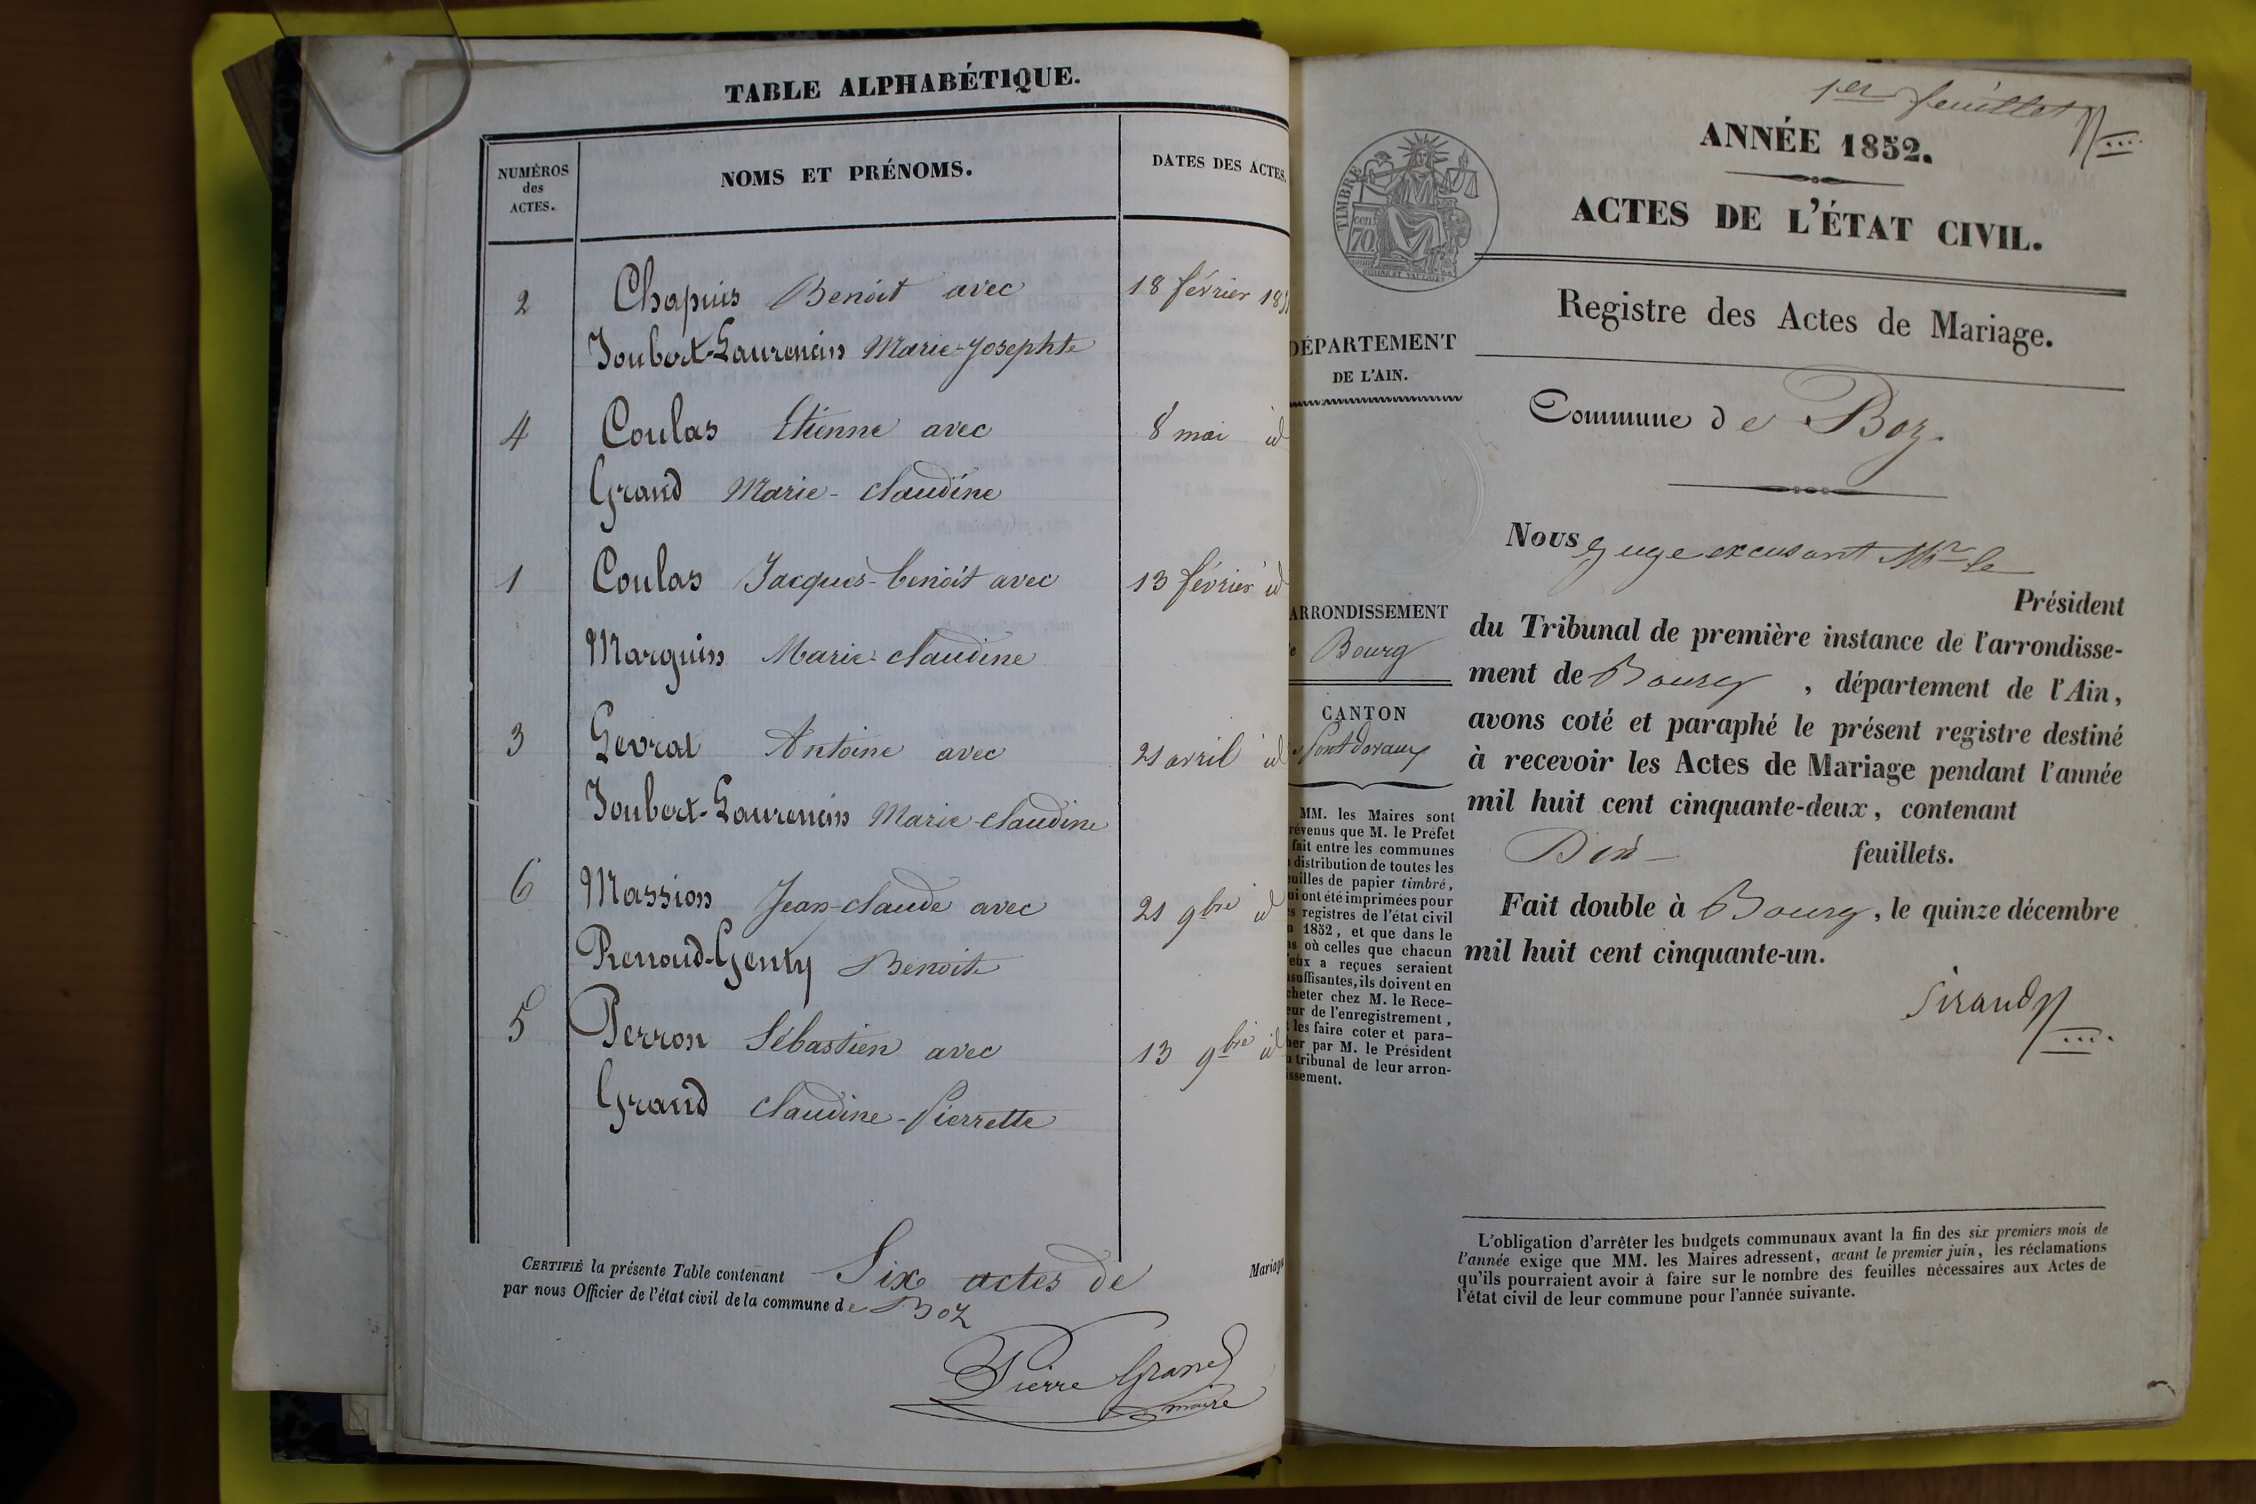 TABLE ALPHABÉTIQUE.
NUMÉROS
des
ACTES.
NOMS ET PRÉNOMS.
DATES DES ACTES.
2 Chapuis Benoit avec 18 février 185
Joubert-Laurencin Marie-Josephte
4 Coulas Etienne avec 8 mai id
Grand Marie-claudine
1 Coulas Jacques-benoit avec 13 février id
Marguin Marie-claudine
3 Gevrat Antoine avec 21 avril id
Joubert-Laurencin Marie-claudine
6 Massion Jean-claude avec 21 9bre id
Renoud-Genty Benoite
5 Perron Sébastien avec 13 9bre id
Grand claudine-Pierrette
CERTIFIÉ la présente Table contenant Six actes de Mariage
par nous Officier de l'état civil de la commune de Boz
Pierre Grand
maire
1er feuillet
ANNÉE 1852.
ACTES DE L'ÉTAT CIVIL.
TIMBRE
cen.
70
Registre des Actes de Mariage.
DÉPARTEMENT
DE L'AIN.
Commune de Boz.
Nous Juge excusant Mr le
Président
du Tribunal de première instance de l'arrondisse-
ment de Bourg, département de l'Ain,
avons coté et paraphé le présent registre destiné
à recevoir les Actes de Mariage pendant l'année
mil huit cent cinquante-deux, contenant
Dix feuillets.
Fait double à Bourg, le quinze décembre
mil huit cent cinquante-un.
Sirand
ARRONDISSEMENT
e Bourg
CANTON
e Pontdevaux
MM. les Maires sont
révenus que M. le Préfet
fait entre les communes
a distribution de toutes les
euilles de papier timbré,
ui ont été imprimées pour
es registres de l'état civil
n 1852, et que dans le
as où celles que chacun
d'eux a reçues seraient
nsuffisantes, ils doivent en
cheter chez M. le Rece-
eur de l'enregistrement,
t les faire coter et para-
her par M. le Président
u tribunal de leur arron-
issement.
L'obligation d'arrêter les budgets communaux avant la fin des six premiers mois de
l'année exige que MM. les Maires adressent, avant le premier juin, les réclamations
qu'ils pourraient avoir à faire sur le nombre des feuilles nécessaires aux Actes de
l'état civil de leur commune pour l'année suivante.